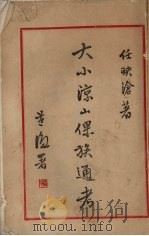 任映滄著
大小涼山倮族通考
署